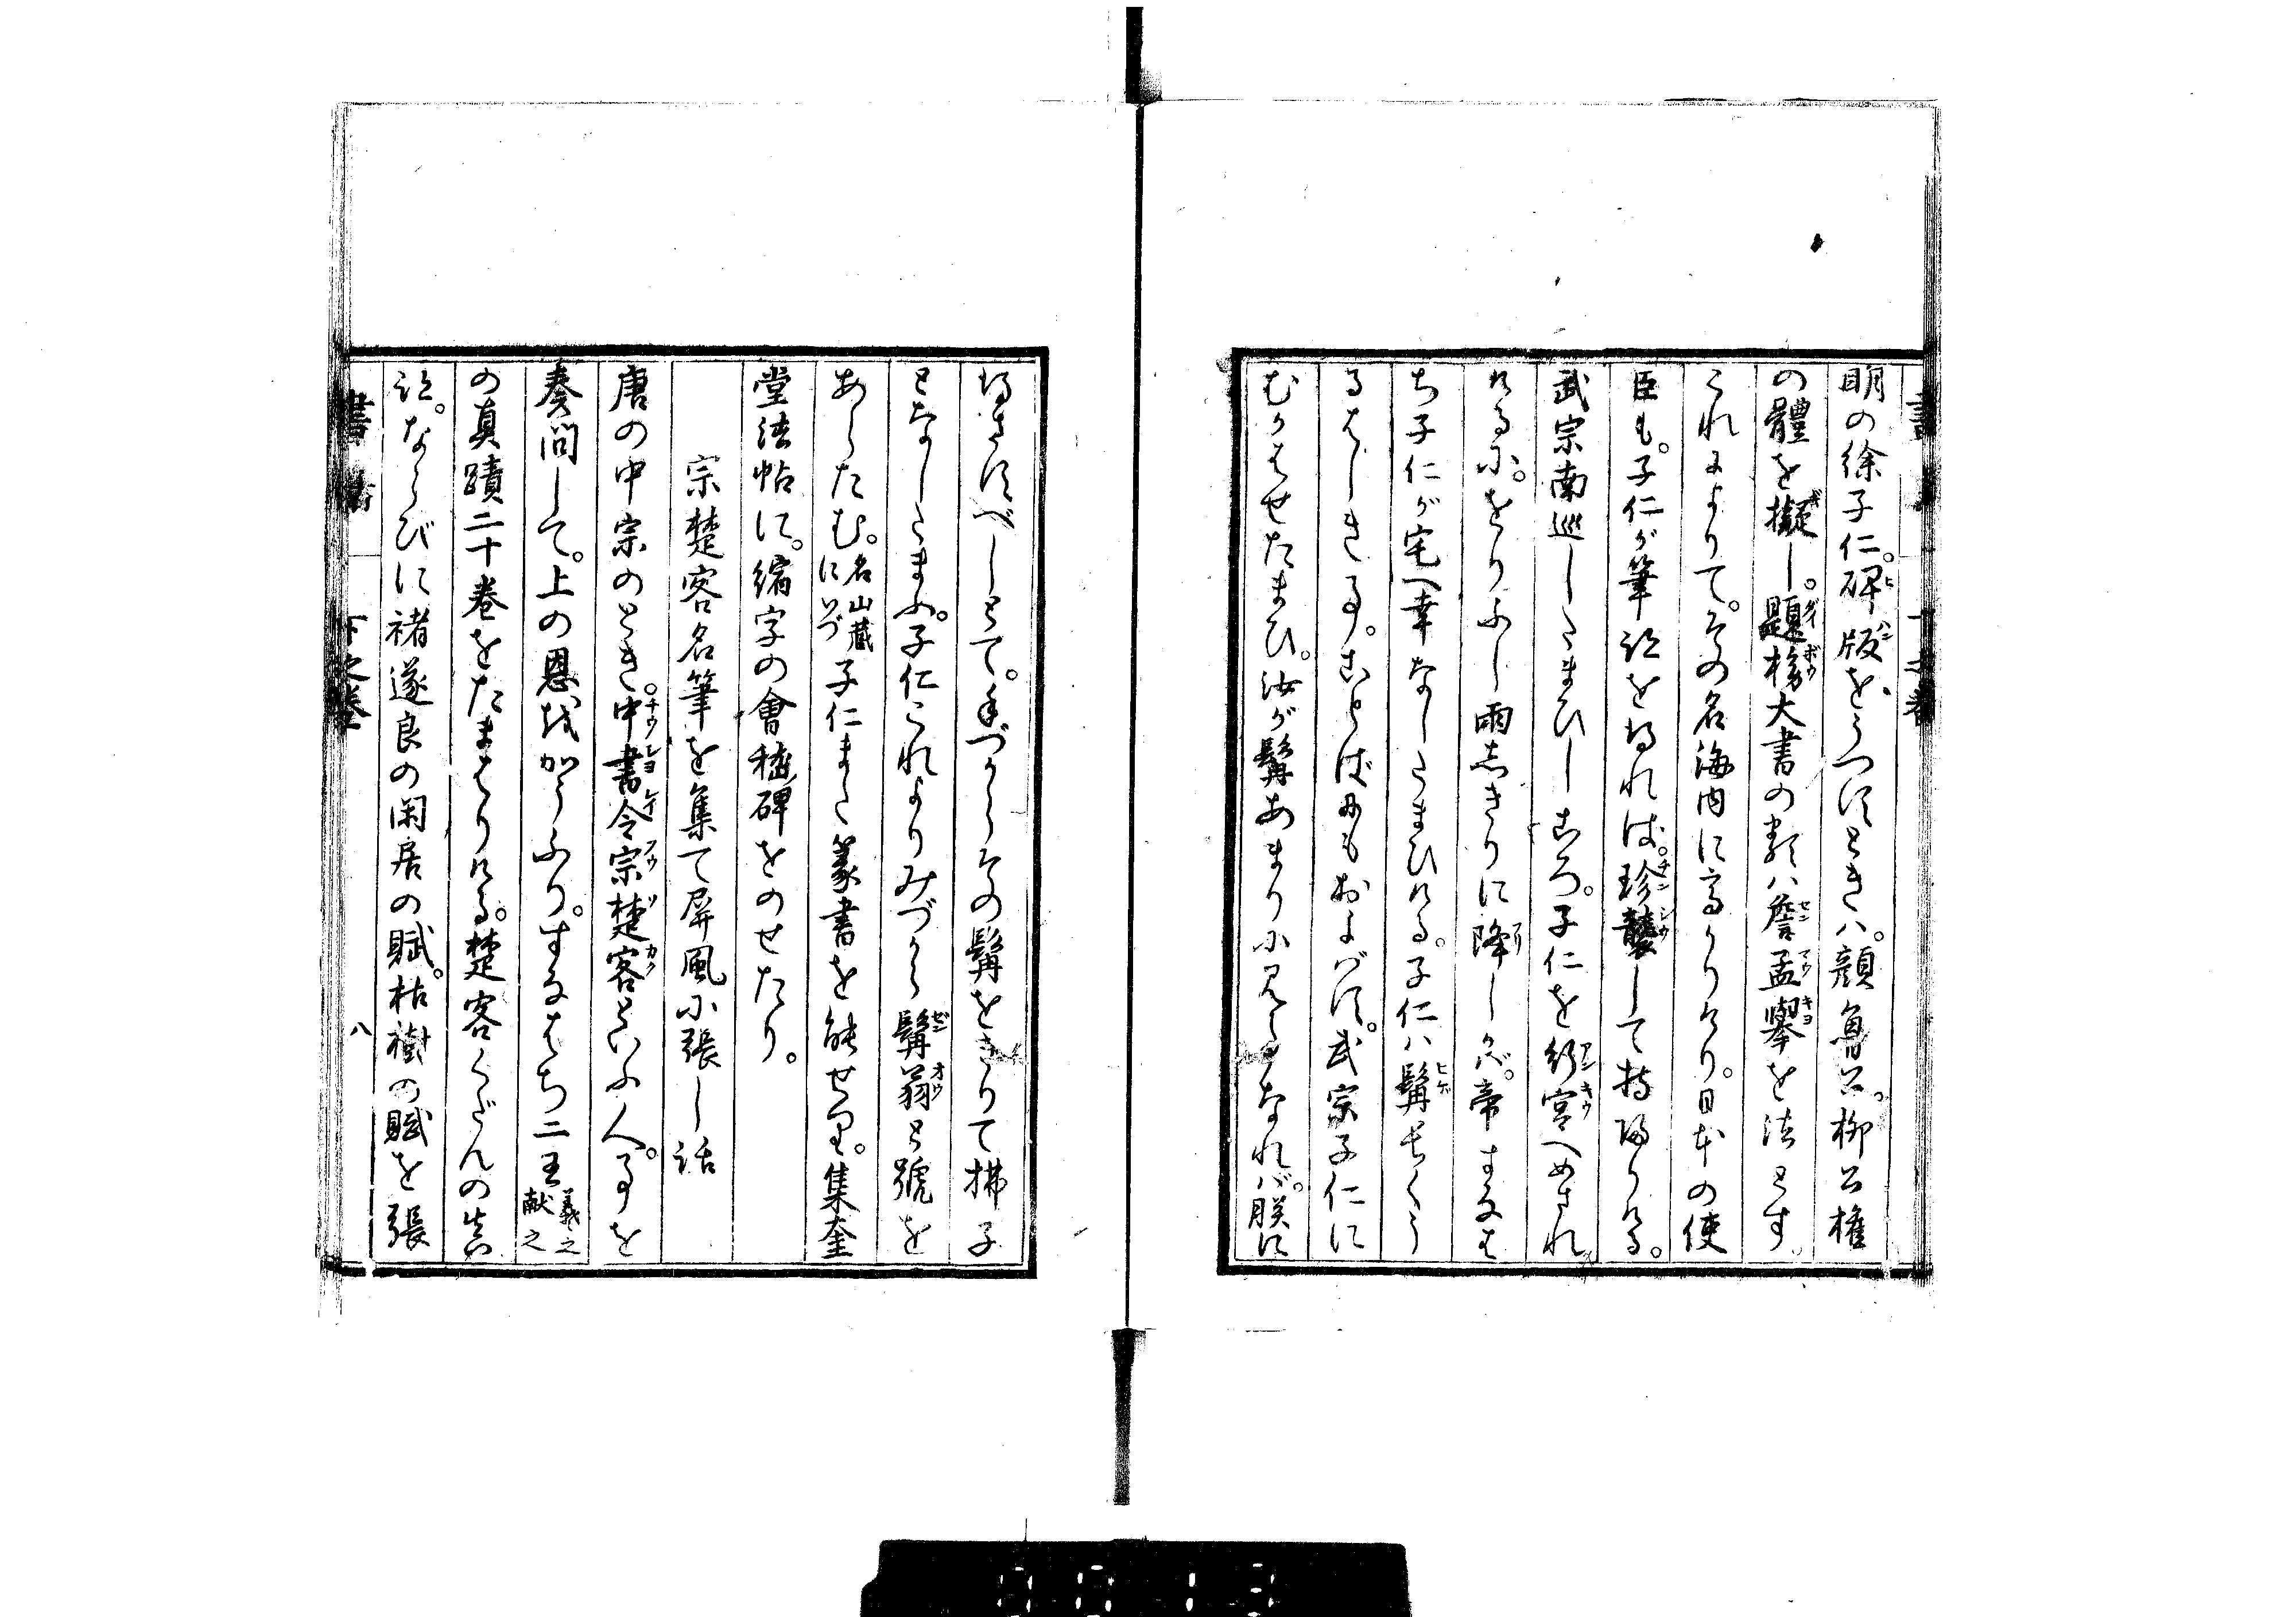 明の徐子仁。碑版をうつすときハ。顔魯公。柳公権
の體を擬し。題榜大書の類ハ詹孟擧を法とす。
これによりて。その名海内に高かりけり。日本の使
臣も。子仁が筆跡を得れば。珍襲して持帰りける。
武宗南巡したまひしころ。子仁を行宮へめされ
けるに。をりふし雨しきりに降しかバ。帝すなは
ち子仁が宅へ幸なしたまひける。子仁ハ髯長くう
るはしき事。ことば にもおよバず。武宗子仁に
むかはせたまひ。汝が髯あまりに見事なれバ。朕に
得さすべしとて。手づからその髯をきりて拂子
となしたまふ。子仁これよりみづから髯翁と號を
あらたむ。名山藏にいづ子仁また篆書を能せり。集奎
堂法帖に。縮字の會稽碑をのせたり。
宗楚客名筆を集て屏風に張し話
唐の中宗のとき。中書令宗楚客といふ人。事を
奏問して。上の恩をかうふり。すなはち二王羲之献之
の真蹟二十巻をたまはりける。楚客くだんの真
跡。ならびに褚遂良の閑居の賦。枯樹の賦を張
下之巻
八